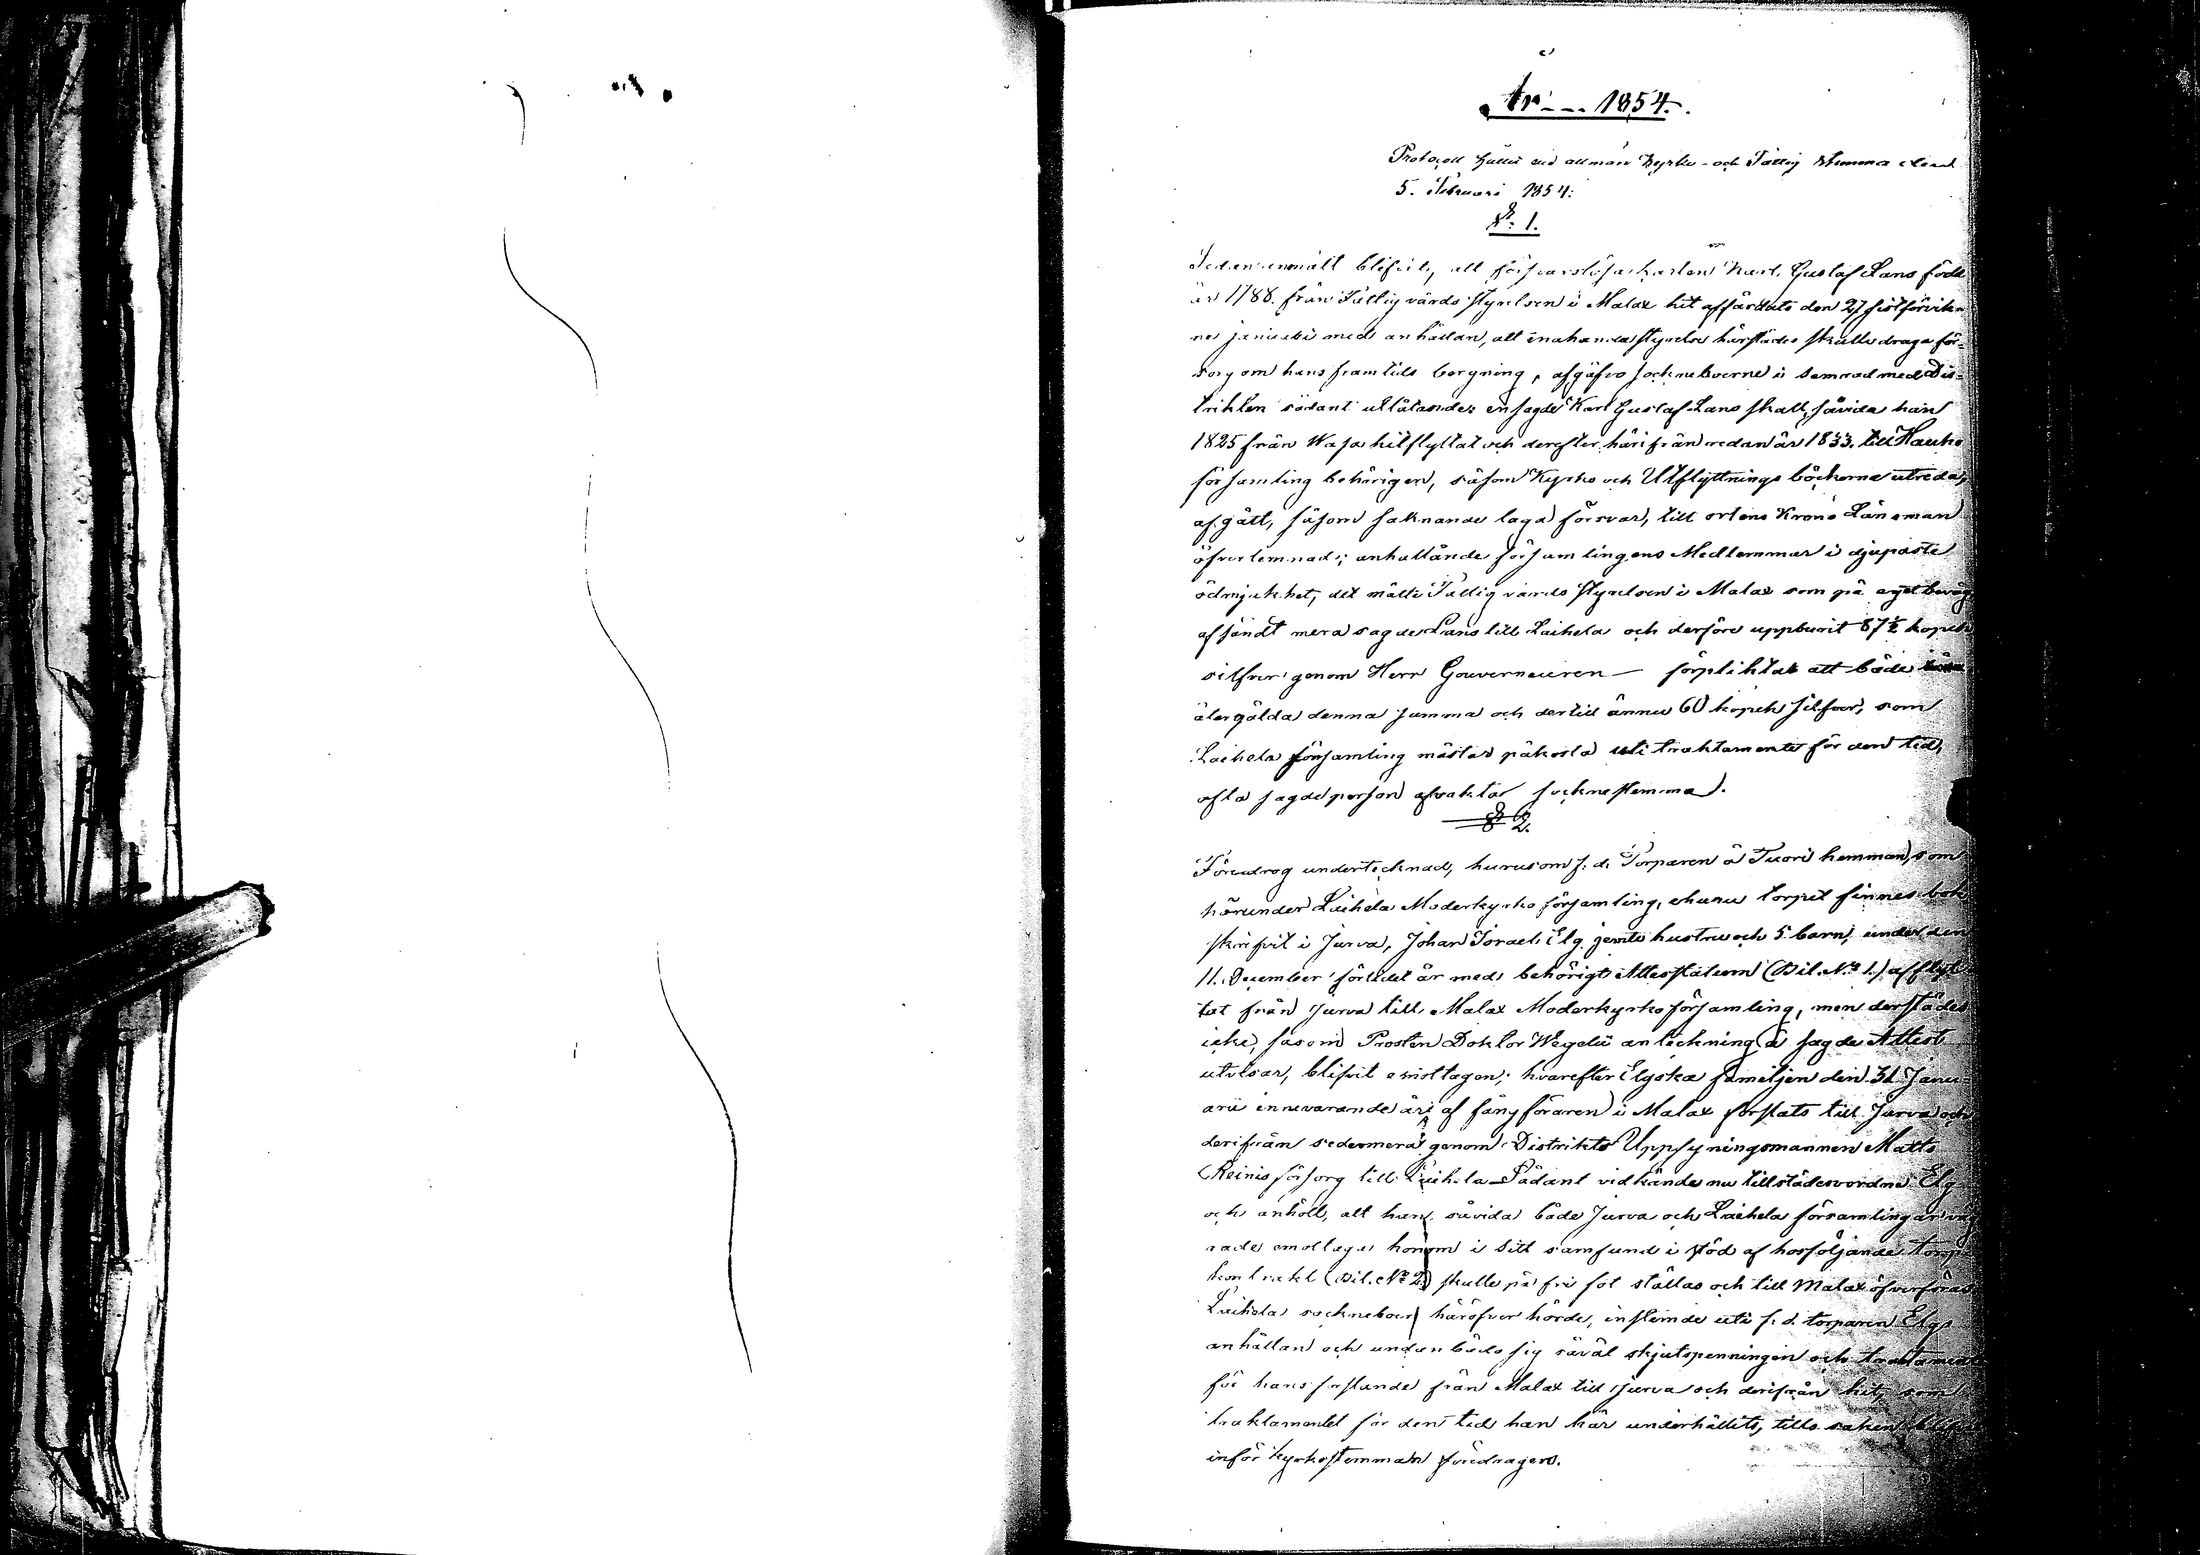 År 1854.
Protocoll hållit vid allmän Kyrko- och Fattig Stemma den
5. Februari 1854:
§. 1.
Sedan anmält blifvit, att försvarslösa karlen Karl Gustaf Lans född
år 1788. från Fattigvårds styrelsen i Malax hit affärdats den 27 sistförvikn-
ne januarii med anhållan, att enahanda styrelse härstädes skulle draga för-
sorg om hans framtids bergning, afgåfvo sockneboerne i samråd med Dis-
trikten sådant utlåtande: en sagde Karl Gustaf Lans skall, såvida han
1825 från Wasa hitflyttat och derefter härifrån redan år 1833. till Hauho
församling behörigen, såsom Kyrko och Utflyttnings böckerna utreda,
afgått, såsom saknande laga försvar, till ortens Krono Länsman
öfverlemnad; anhållande församlingens Medlemmar i djupaste
ödmjukhet, det måtte Fattigvårds styrelsen i Malax som på eget bevåg
afsändt mera sagde Lans till Laihela och derföre uppburit 87½ kopek
silfver genom Herr Gouverneuren — förpliktas att både
återgälda denna summa och dertill ännu 60 kopek silfver, som
Laihela församling måstat påkosta uti traktamente för den tid,
ofta sagde person afvaktar sockne stemma.
§ 2.
Föredrog undertecknad, hurusom f. d. Torparen å Tuori hemman, som
hörunder Laihela Moderkyrko församling, ehuru torpet finnes bok
skrifvit i Jurva, Johan Israel Elg jemte hustru och 5 barn, under den
11. December förledet år med behörigt Attestatum (Bil. No 1.) afflyt-
tat från Jurva till Malax Moderkyrkoförsamling, men derstädes
icke, såsom Prosten Doktor Wegelii anteckning å sagde Attest
utvisar, blifvit emottagen; hvarefter Elgska familjen den 31 Janu-
arii innevarande år af fångföraren i Malax forslats till Jurva och
derifrån sedermera genom Distrikts Uppsyningsmannen Matts
Reinis försorg till Laihela. Sådant vidkände nu tillstädesvordne Elg
och anhöll, att han, såvida både Jurva och Laihela församlingar väg
rade emottaga honom i sitt samfund i stöd af hosföljande torp
kontrakt (Bil. No 2.) skulle på fri fot ställas och till Malax öfverföras.
Laihela sockneboer häröfver hörde, instemde uti f. d. torparen Elgs
anhållan och undanbådo sig såväl skjutspenningen och traktament
för hans forslande från Malax till Jurva och derifrån hit, som
traktamentet för den tid han här underhållits, tills saken
inför kyrkostemman föredragens.